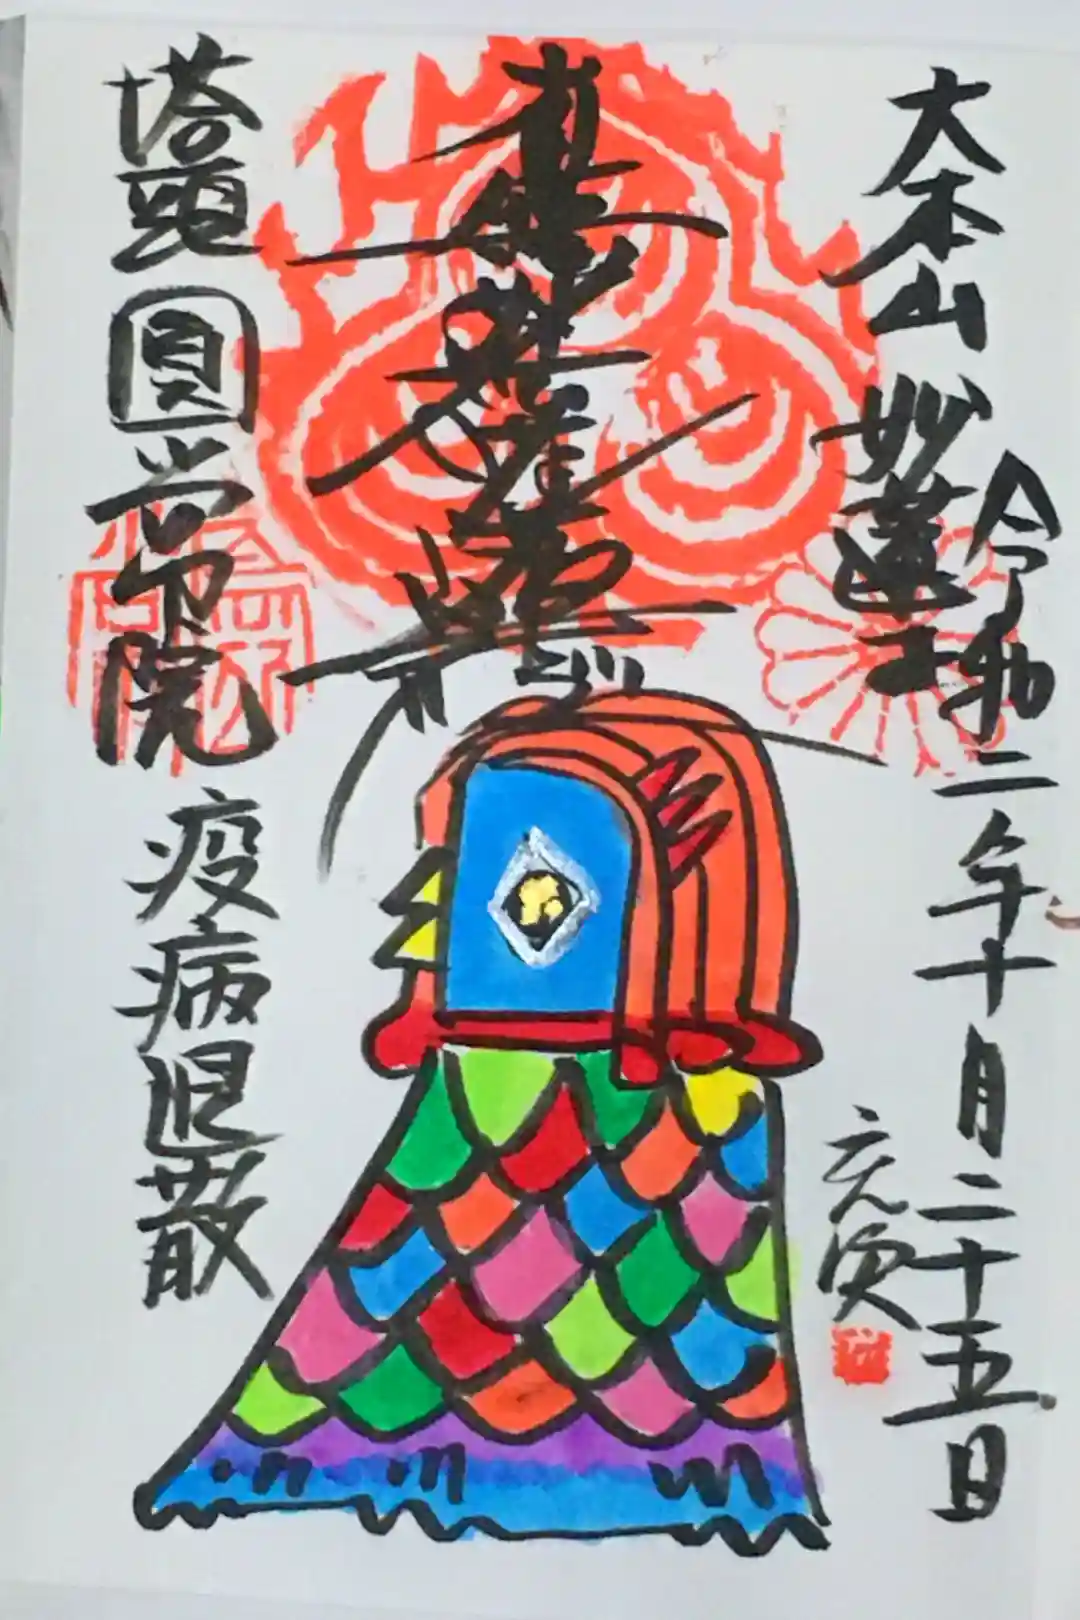 大本山妙蓮寺
令和二年十月二十五日
南無妙法蓮華経
塔頭圓常院
疫病退散